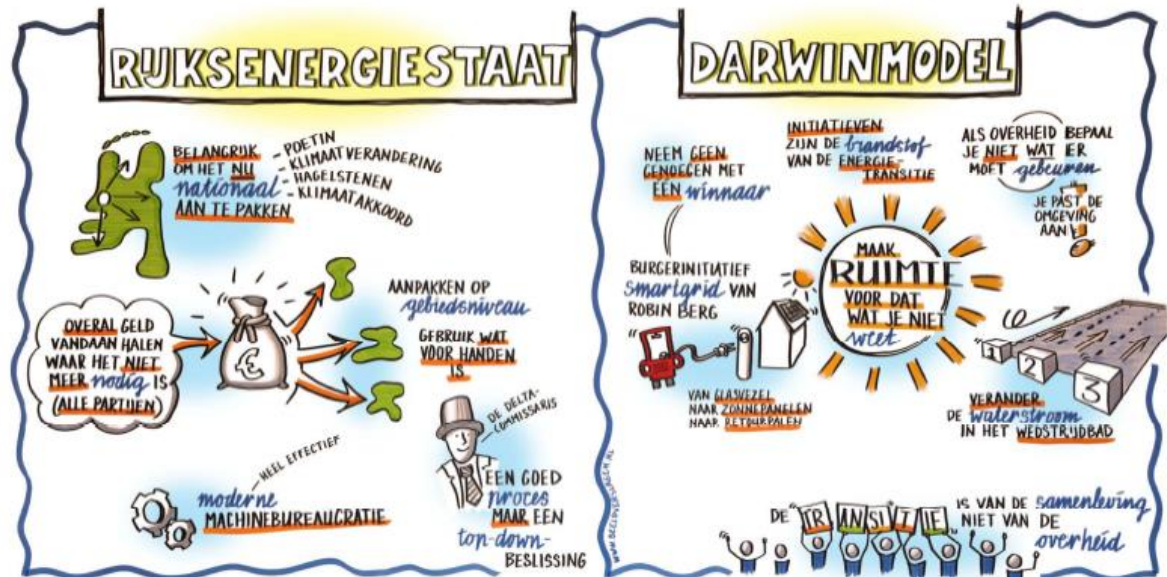 RIJKSENERGIESTAAT
BELANGRIJK
OM HET NU
nationaal
AAN TE PAKKEN
POETIN
KLIMAATVERANDERING
HAGELSTENEN
KLIMAATAKKOORD
OVERAL GELD
VANDAAN HALEN
WAAR HET NIET
MEER nodig IS
(ALLE PARTIJEN)
€
AANPAKKEN OP
gebiedsniveau
GEBRUIK WAT
VOOR HANDEN
IS
DE DELTA-
COMMISSARIS
EEN GOED
proces
MAAR EEN
top-down-
BESLISSING
HEEL EFFECTIEF
moderne
MACHINEBUREAUCRATIE
DARWINMODEL
NEEM GEEN
GENOEGEN MET
EEN winnaar
INITIATIEVEN
ZIJN DE brandstof
VAN DE ENERGIE-
TRANSITIE
ALS OVERHEID BEPAAL
JE NIET WAT ER
MOET gebeuren
JE PAST DE
OMGEVING
AAN
BURGERINITIATIEF
smartgrid VAN
ROBIN BERG
VAN GLASVEZEL
NAAR ZONNEPANELEN
NAAR RETOURPALEN
MAAK
RUIMTE
VOOR DAT
WAT JE NIET
weet
1
2
3
VERANDER
DE waterstroom
IN HET WEDSTRIJDBAD
DE TRANSITIE IS VAN DE samenleving
NIET VAN DE
overheid